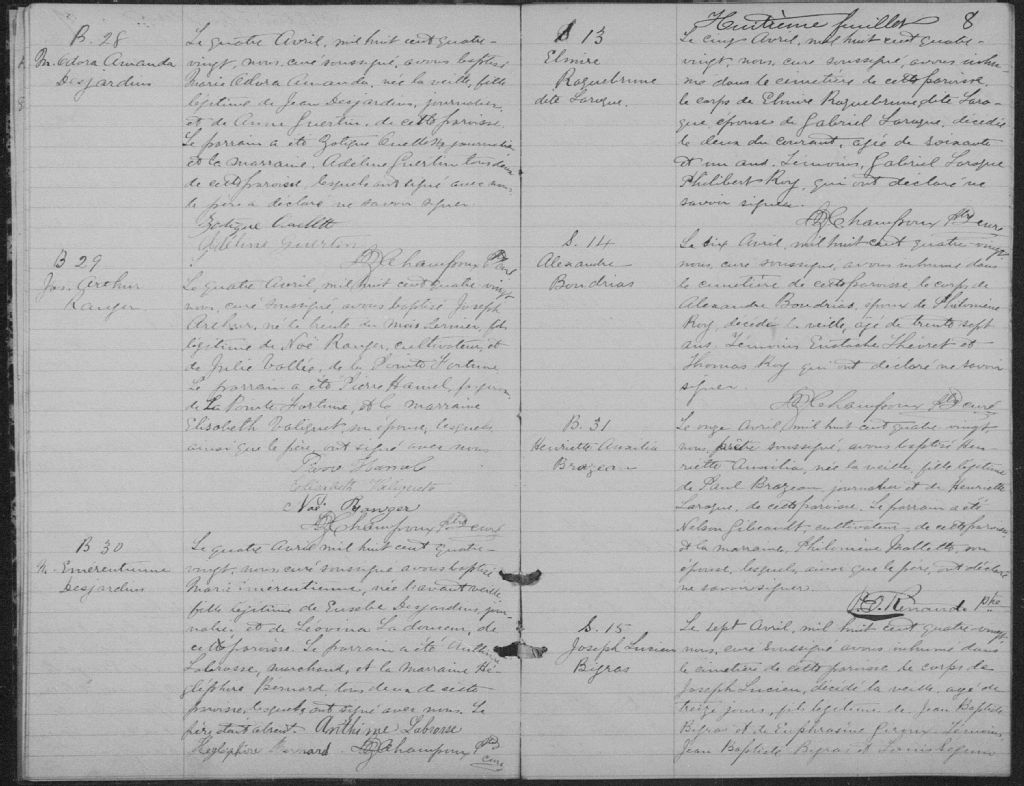 B. 28
M. Adora Amanda
Desjardins
Le quatre Avril, mil huit cent quatre-
vingt, nous, curé soussigné, avons baptisé
Marie Adora Amanda, née la veille, fille
légitime de Jean Desjardins, journalier,
et de Anne Guertin, de cette paroisse.
Le parrain a été Zotique Ouellette, journalier
et la marraine, Adeline Guertin tous deux
de cette paroisse, lesquels ont signé avec nous
le père a déclaré ne savoir signer.
Zotique Ouellett
Adeline Guertin
Champoux Ptre curé
B 29
Jos. Arthur
Ranger
Le quatre Avril, mil huit cent quatre vingt
nous, curé soussigné, avons baptisé Joseph
Arthur, né le trente du mois dernier, fils
légitime de Noé Ranger, cultivateur, et
de Julie Vallée, de la Pointe Fortune.
Le parrain a été Pierre Hamel, forgeron
de la Pointe Fortune, et la marraine
Elisabeth Valiquet, son épouse, lesquels
ainsi que le père, ont signé avec nous
Pierre Hamel
Elisabeth
Noé Ranger
Champoux Ptre curé
B 30
M. Emerentienne
Desjardins
Le quatre Avril mil huit cent quatre-
vingt, nous, curé soussigné avons baptisé
Marie Emerentienne, née l'avant veille,
fille légitime de Eusèbe Desjardins, jour-
nalier, et de Léovina Ladouceur, de
cette paroisse. Le parrain a été Anthime
Labrosse, marchand, et la marraine Hé-
glephire Bernard, tous deux de cette
paroisse, lesquels ont signé avec nous. Le
père était absent. Anthime Labrosse
Heglephire Bernard Champoux Ptre
curé
Huitième feuillet 8
S 13
Elmire
Roquebrune
dite Laroque.
Le cinq Avril, mil huit cent quatre-
vingt, nous, curé soussigné, avons inhu-
mé dans le cimetière de cette paroisse
le corps de Elmire Roquebrune, dite Laro-
que, épouse de Gabriel Laroque, décédée
le deux du courant, agée de soixante
et un ans. Témoins, Gabriel Laroque
Philibert Roy, qui ont déclaré ne
savoir signer.
Champoux Ptre curé
S. 14
Alexandre
Boudrias
Le dix Avril, mil huit cent quatre-vingt
nous, curé soussigné, avons inhumé dans
le cimetière de cette paroisse, le corps de
Alexandre Boudrias, époux de Philomène
Roy, décédé la veille, agé de trente sept
ans. Témoins Eustache Théoret et
Thomas Roy qui ont déclaré ne savoir
signer
Champoux Ptre curé
B. 31
Henriette Auxilia
Brazeau
Le onze Avril, mil huit cent quatre vingt
nous, prêtre soussigné, avons baptisé Hen-
riette Auxilia, née la veille, fille légitime
de Paul Brazeau, journalier et de Henriette
Laroque, de cette paroisse. Le parrain a été
Nelson Gibeault, cultivateur de cette paroisse
et la marraine, Philomène Mallette, son
épouse, lesquels, ainsi que le père, ont déclaré
ne savoir signer.
Renaud Ptre
S. 15
Joseph Lucien
Bigras
Le sept Avril, mil huit cent quatre-vingt
nous, curé soussigné avons inhumé dans
le cimetière de cette paroisse le corps de
Joseph Lucien, décédé la veille, agé de
treize jours, fils légitime de Jean Baptiste
Bigras et de Euphrosine Giroux. Témoins,
Jean Baptiste Bigras et Louis Séguin